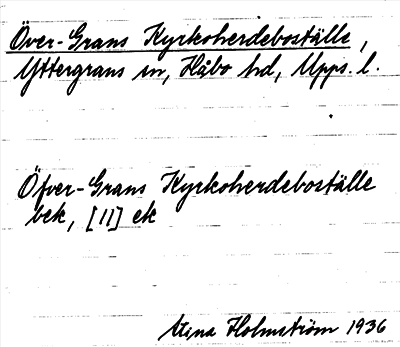 Över-Grans Kyrkoherdeboställe,
Yttergrans sn, Håbo hd, Upps. l.
Öfver-Grans Kyrkoherdeboställe
bek, [11] ek
Stina Holmström 1936